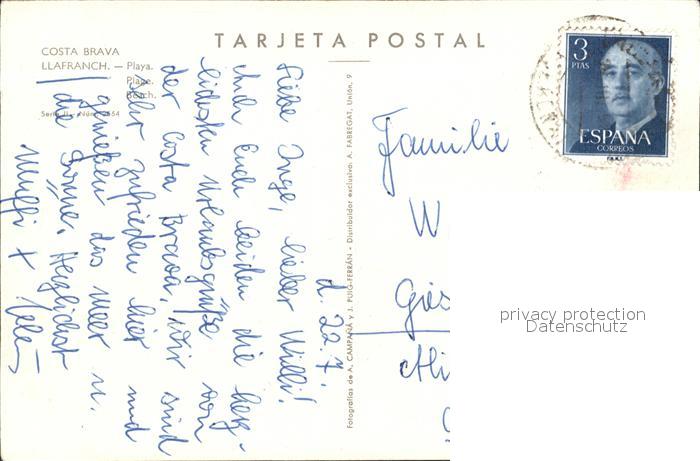 TARJETA POSTAL
COSTA BRAVA
LLAFRANCH. — Playa.
Plage.
Beach.
d. 22.7.
Liebe Inge, lieber Willi!
Euch beiden die herz-
lichsten Urlaubsgrüße von
der Costa Brava, wir sind
sehr zufrieden hier und
genießen das Meer u.
die Sonne. Herzlichst
Muffi +
Fotografías de A. CAMPAÑÁ y J. PUIG-FERRÁN - Distribuidor exclusivo: A. FARREGAT, Unión, 9
3
PTAS
ESPAÑA
CORREOS
Familie
W
privacy protection
Datenschutz